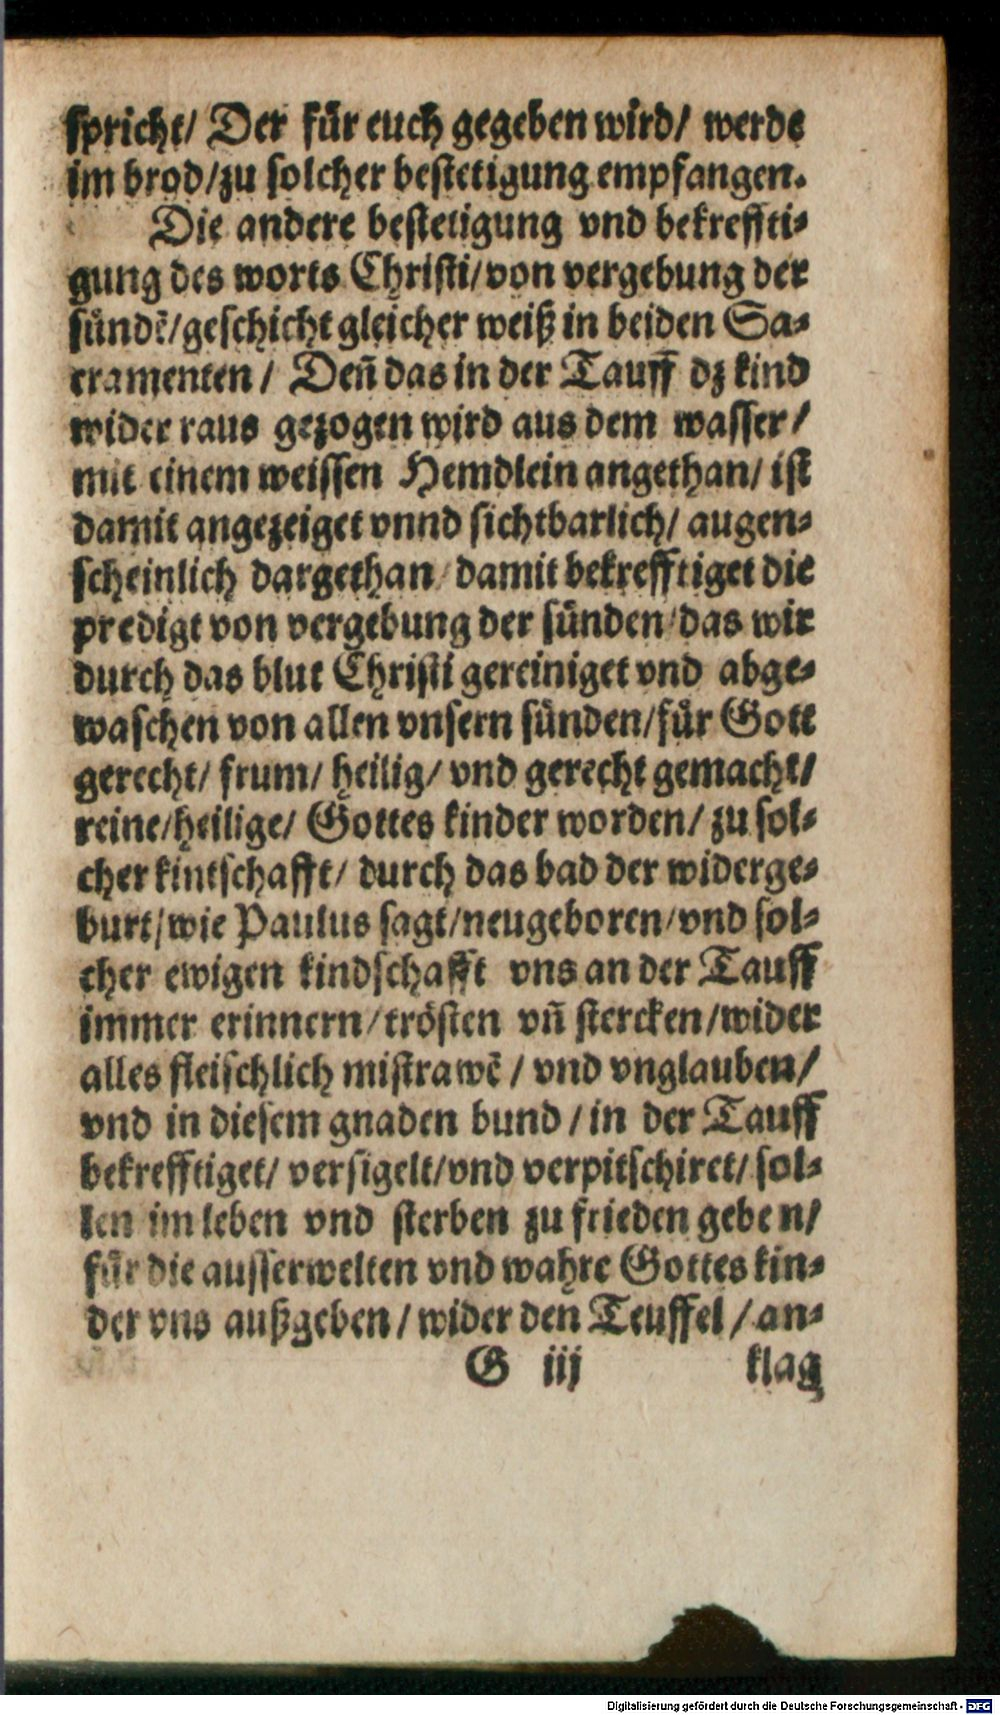 spricht/ Der für euch gegeben wird/ werde
im brod/zu solcher bestetigung empfangen.
Die andere bestetigung vnd bekreffti⸗
gung des worts Christi/von vergebung der
sündẽ/geschicht gleicher weiß in beiden Sa⸗
cramenten/ Deñ das in der Tauff dz kind
wider raus gezogen wird aus dem wasser/
mit einem weissen Hemdlein angethan/ ist
damit angezeiget vnnd sichtbarlich/ augen⸗
scheinlich dargethan/ damit bekrefftiget die
predigt von vergebung der sünden/das wir
durch das blut Christi gereiniget vnd abge⸗
waschen von allen vnsern sünden/für Gott
gerecht/ frum/ heilig/ vnd gerecht gemacht/
reine/heilige/ Gottes kinder worden/ zu sol⸗
cher kintschafft/ durch das bad der widerge⸗
burt/wie Paulus sagt/neugeboren/vnd sol⸗
cher ewigen kindschafft vns an der Tauff
immer erinnern/trösten vñ stercken/wider
alles fleischlich mistrawẽ/ vnd vnglauben/
vnd in diesem gnaden bund/in der Tauff
bekrefftiget/ versigelt/vnd verpitschiret/ sol⸗
len im leben vnd sterben zu frieden geben/
für die ausserwelten vnd wahre Gottes kin⸗
der vns außgeben/wider den Teuffel/an⸗
G iij klag
Digitalisierung gefördert durch die Deutsche Forschungsgemeinschaft - DFG